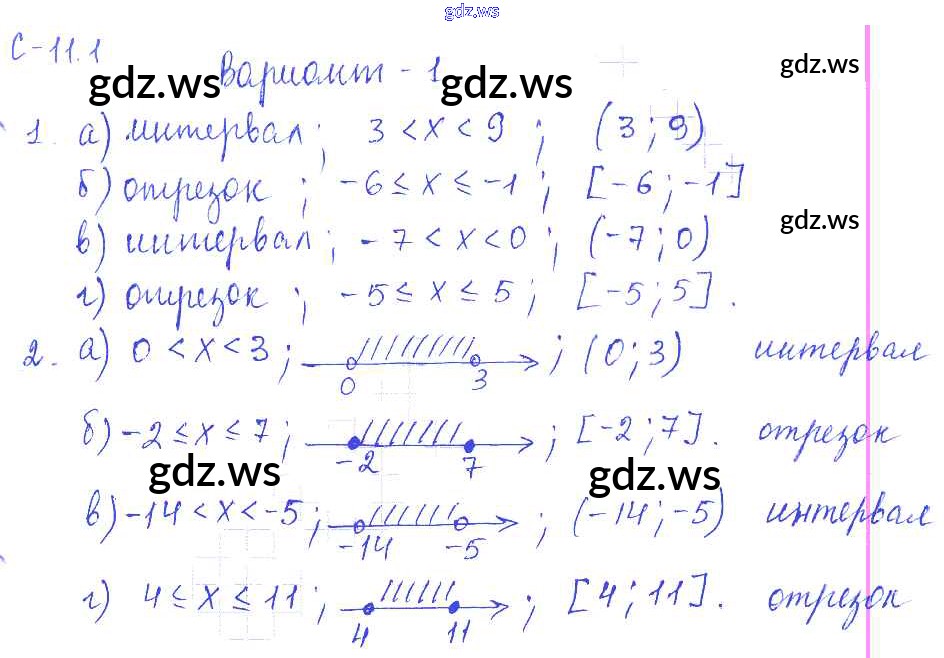 gdz.ws
С-11.1
Вариант - 1
gdz.ws gdz.ws gdz.ws
1. а) интервал; 3 < x < 9; (3; 9)
б) отрезок; -6 ≤ x ≤ -1; [-6; -1]
в) интервал; -7 < x < 0; (-7; 0)
gdz.ws
г) отрезок; -5 ≤ x ≤ 5; [-5; 5].
2. а) 0 < x < 3; 0 3; (0; 3) интервал
б) -2 ≤ x ≤ 7; -2 7; [-2; 7]. отрезок
gdz.ws gdz.ws
в) -14 < x < -5; -14 -5; (-14; -5) интервал
г) 4 ≤ x ≤ 11; 4 11; [4; 11]. отрезок